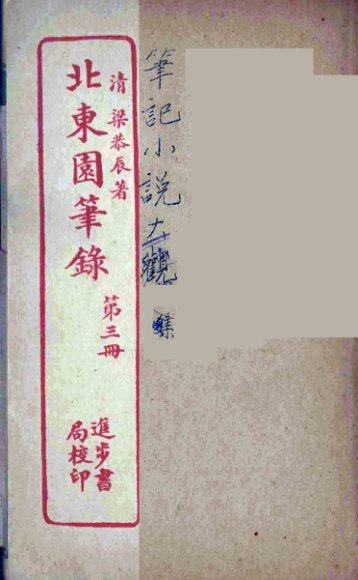 筆記小説大觀
清 梁恭辰著
北東園筆錄
第三冊
進步書
局校印